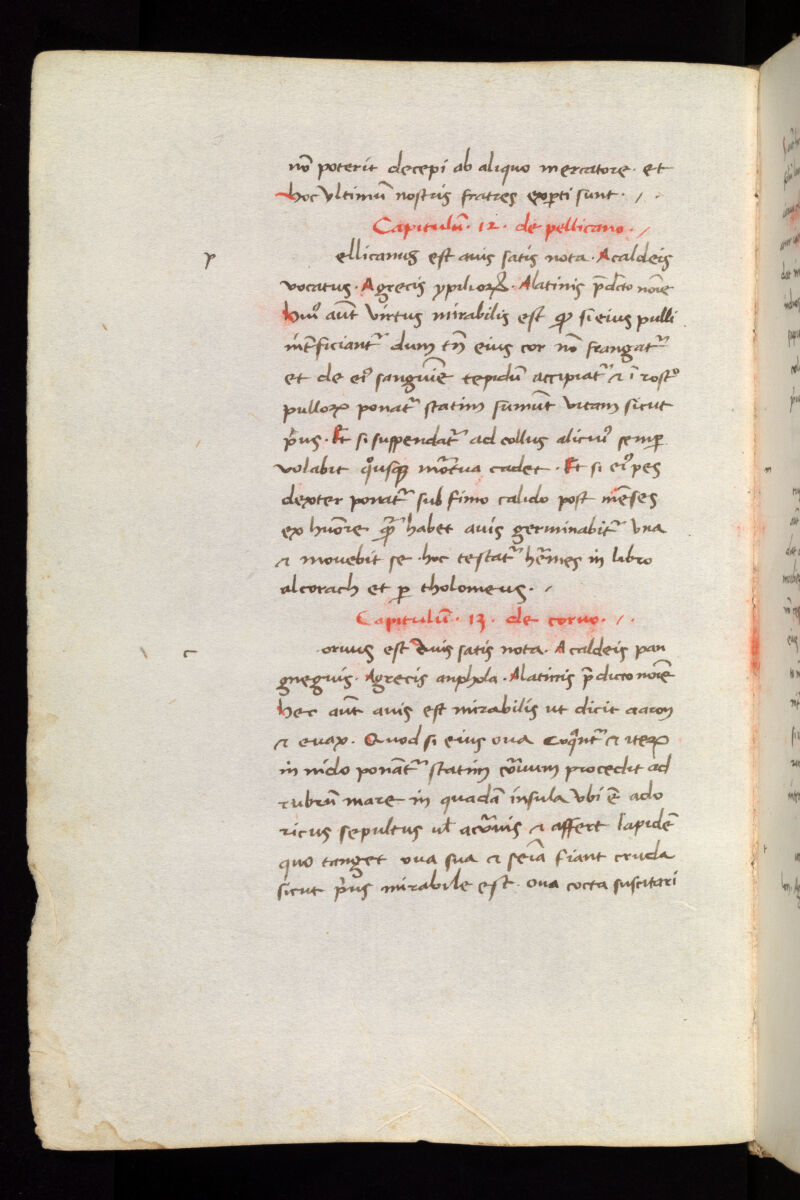 nō poterit decepi ab aliquo mercatore. et
hoc ultimū nostris fratres experti sunt.
Capitulū. 12. de pellicano.
p
ellicanus est avis satis nota. A caldeis
vocatus. A grecis ypilioꝝ. A latinis p̄dcto noīe
huiꝰ aūt virtus mirabilis est si eius pulli
dum tn̄ eius cor nō frangatᷣ
et de eiꝰ sanguīe tepidū accipiatᷣ ⁊ ī rostꝰ
pulloꝝ ponatᷣ statim sumūt vitam sicut
pͥus. Et si suspendatᷣ ad collus alicuiꝰ semꝑ
volabit mortua cadet. Et si eiꝰ pes
dexter ponatᷣ sub fimo calido post mēses
ex huōre habet avis germinabitᷣ una
⁊ movebit se. hoc testatᷣ hermes in libro
alcorach et ꝑ tholomeus.
Capitulū. 13. de corvo.
c
orvus est avis satis nota. A caldeis pan
gnegvis. A grecis anphola. A latinis p̄dicto noīe
hec aūt avis est mirabilis ut dicit aaron
⁊ evax. Quod si eius ova coqᷓntᷣ ⁊ iteꝝ
in nido ponātᷣ statim corvum procedit ad
rubrū mare in quadā insula ubi ē ado
ricus sepultus ul acōvnis ⁊ affert lapidē
quo tanget ova sua ⁊ fiant cruda
sicut pͥus mirabile est. ova cocta suscitari